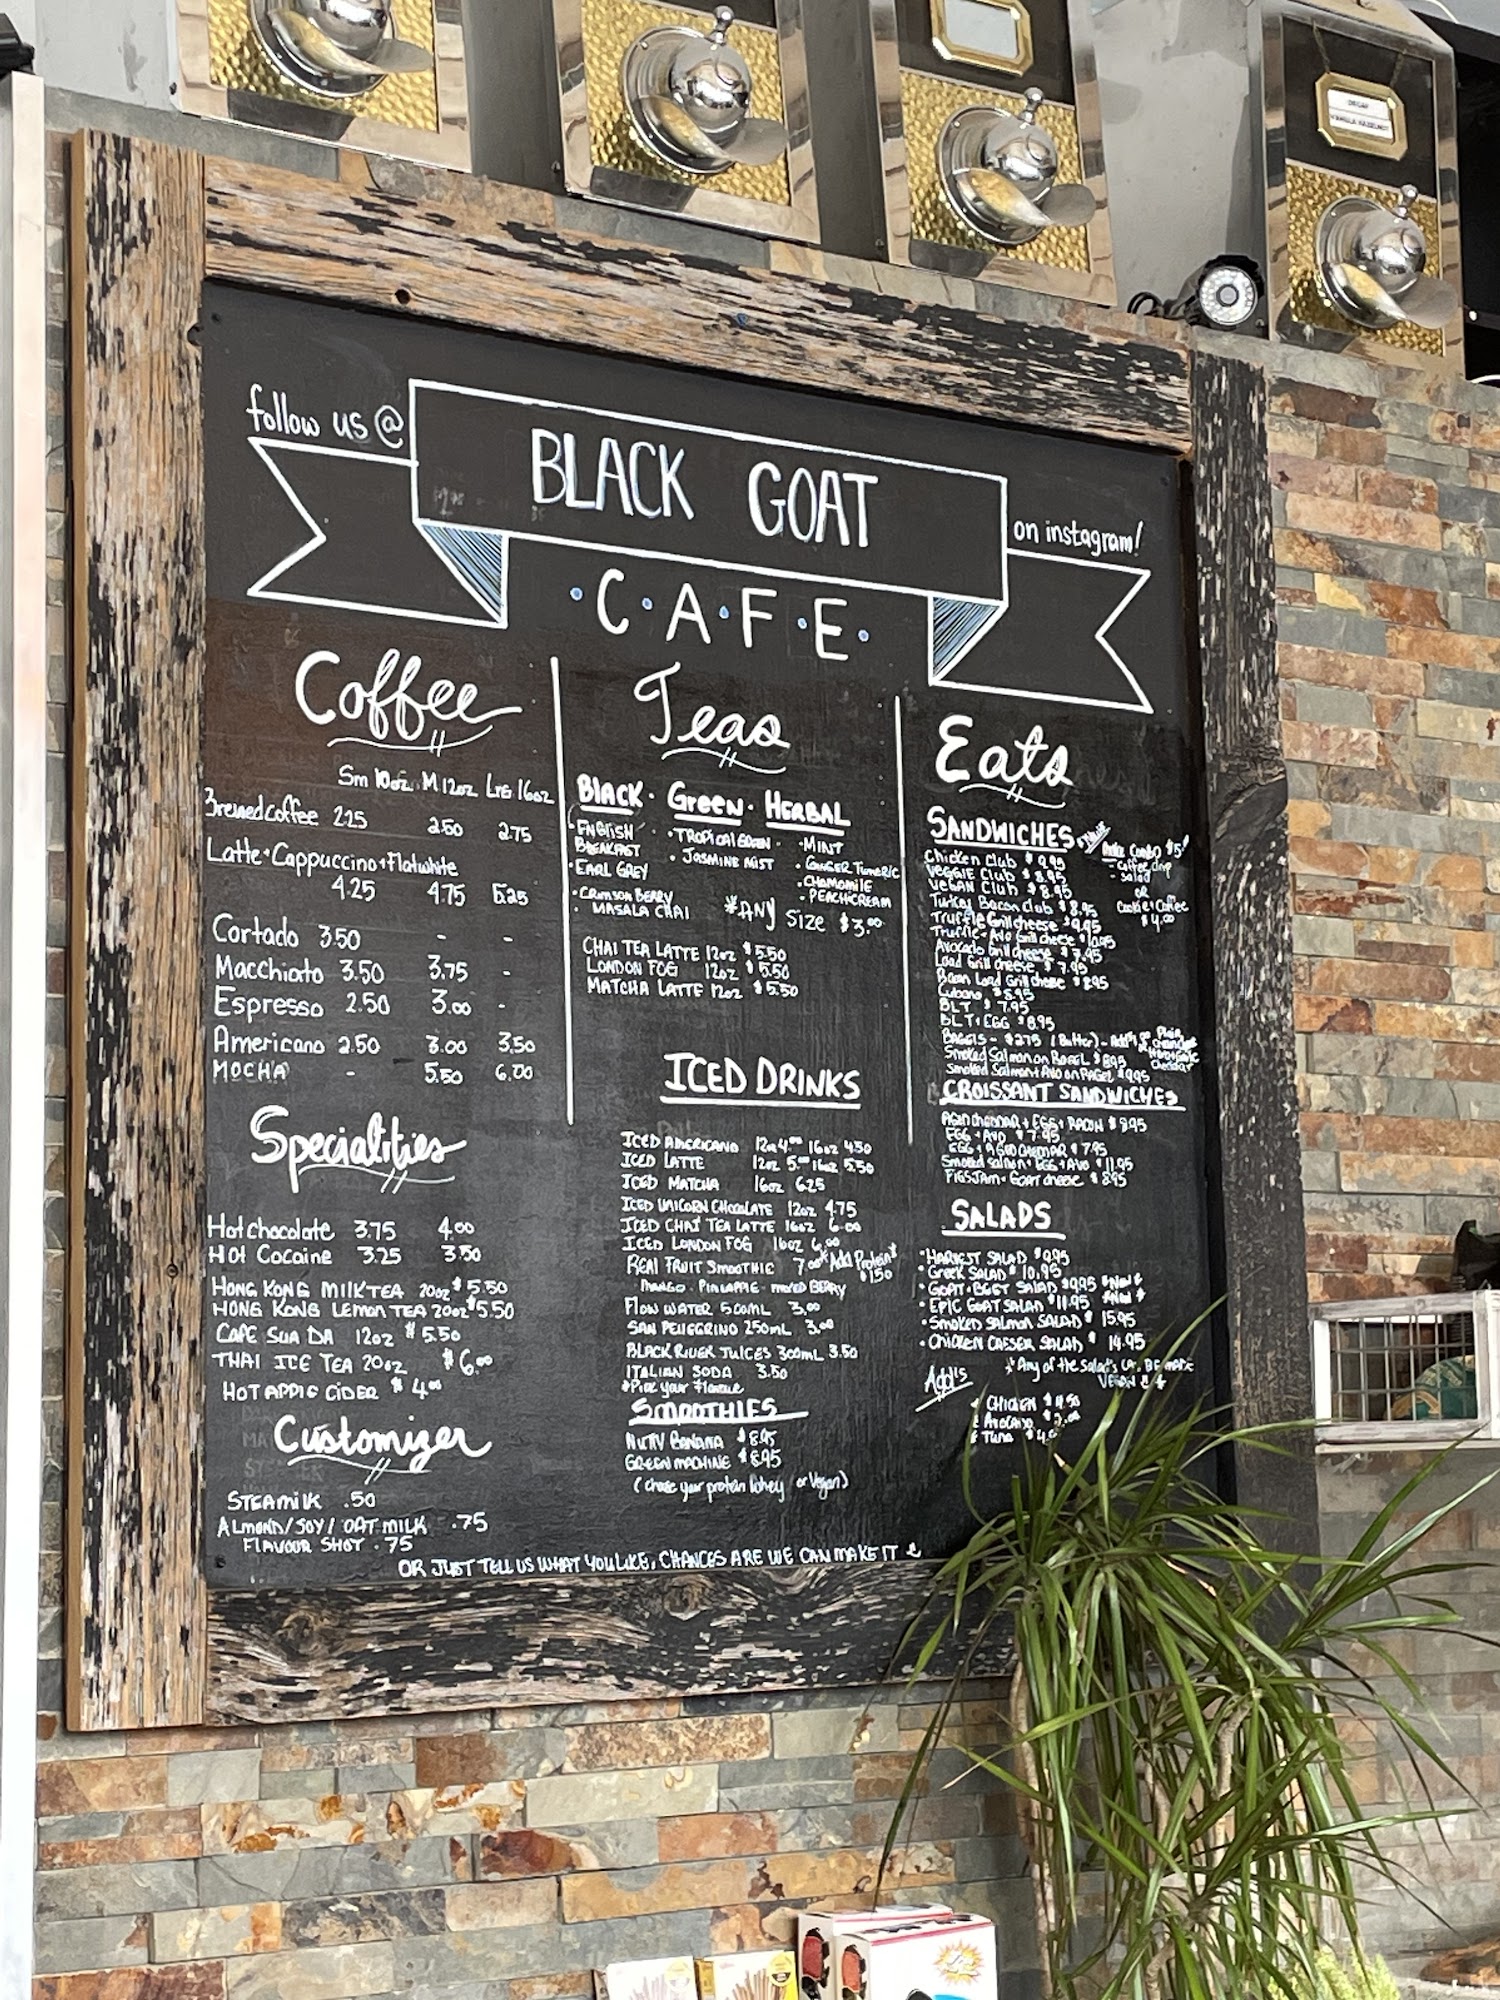 DECAF
VANILLA HAZELNUT
follow us @
BLACK GOAT
on instagram!
C.A.F.E.
Coffee
Sm 10oz M 12oz LrG 16oz
Brewed Coffee 2.25 2.50 2.75
Latte • Cappuccino • Flatwhite
4.25 4.75 5.25
Cortado 3.50 - -
Macchiato 3.50 3.75 -
Espresso 2.50 3.00 -
Americano 2.50 3.00 3.50
MOCHA - 5.50 6.00
Specialities
Hot chocolate 3.75 4.00
Hot Cocaine 3.25 3.50
HONG KONG MILK TEA 20oz $5.50
HONG KONG Lemon TEA 20oz $5.50
CAFE SUA DA 12oz $5.50
THAI ICE TEA 20oz $6.00
HOT APPLE CIDER $4.00
Customizer
STEAMilK .50
ALMOND/SOY/OAT MILK .75
FLAVOUR SHOT .75
Teas
BLACK. Green. HERBAL
• ENGLISH
BREAKFAST
• EARL GREY
• CRIMSON BERRY
• MASALA CHAI
• TROPICAL GREEN
• JASMINE MIST
• MINT
• GINGER TUMERIC
• CHAMOMILE
• PEACH CREAM
*ANY SIZE $3.00
CHAI TEA LATTE 12oz $5.50
LONDON FOG 12oz $5.50
MATCHA LATTE 12oz $5.50
ICED DRINKS
ICED AMERICANO 12oz 4.00 16oz 4.50
ICED LATTE 12oz 5.00 16oz 5.50
ICED MATCHA 16oz 6.25
ICED UNICORN CHOCOLATE 12oz 4.75
ICED CHAI TEA LATTE 16oz 6.00
ICED LONDON FOG 16oz 6.00
REAL FRUIT SMOOTHIE 7.00 *Add Protein*
$1.50
MANGO. PINEAPPLE. MIXED BERRY
FLOW WATER 500ML 3.00
SAN PELLEGRINO 250ML 3.00
BLACK RIVER JUICES 300ML 3.50
ITALIAN SODA 3.50
*Pick your flavour
SMOOTHIES
NUTTY BANANA $8.95
GREEN MACHINE $8.95
(chose your protein Whey or Vegan)
Eats
SANDWICHES
MAKE COMBO $5
- Coffee drip
- Salad
OR
Cookie + Coffee
$4.00
Chicken Club $9.95
VEGGIE Club $8.95
VEGAN Club $8.95
Turkey Bacon Club $8.95
Truffle Grill cheese $9.95
Truffle + Avo Grill cheese $10.95
Avocado Grill cheese $7.95
Load Grill cheese $7.95
Bacon Load Grill cheese $8.95
Cubano $8.95
BLT $7.95
BLT + EGG $8.95
BAGELS - $2.75 (Butter)
Smoked Salmon on BAGEL $8.95
Smoked Salmon + Avo on BAGEL $9.95
CROISSANT SANDWICHES
AGED CHEDDAR + EGG + BACON $8.95
EGG + AVO $7.95
EGG + AGED CHEDDAR $7.95
Smoked salmon + EGG + Avo $11.95
FIGSJAM + GOAT cheese $8.95
SALADS
• HARVEST SALAD $9.95
• Greek SALAD $10.95
• GOAT + BEET SALAD $9.95 *New*
• EPIC GOAT SALAD $11.95 *New*
• SMOKED SALMON SALAD $15.95
• CHICKEN CAESER SALAD $14.95
*Any of the Salad's can BE MADE
VEGAN !! *
Add's
CHICKEN $4.50
AVOCADO $2.00
TUNA
OR JUST TELL US WHAT YOU LIKE, CHANCES ARE WE CAN MAKE IT